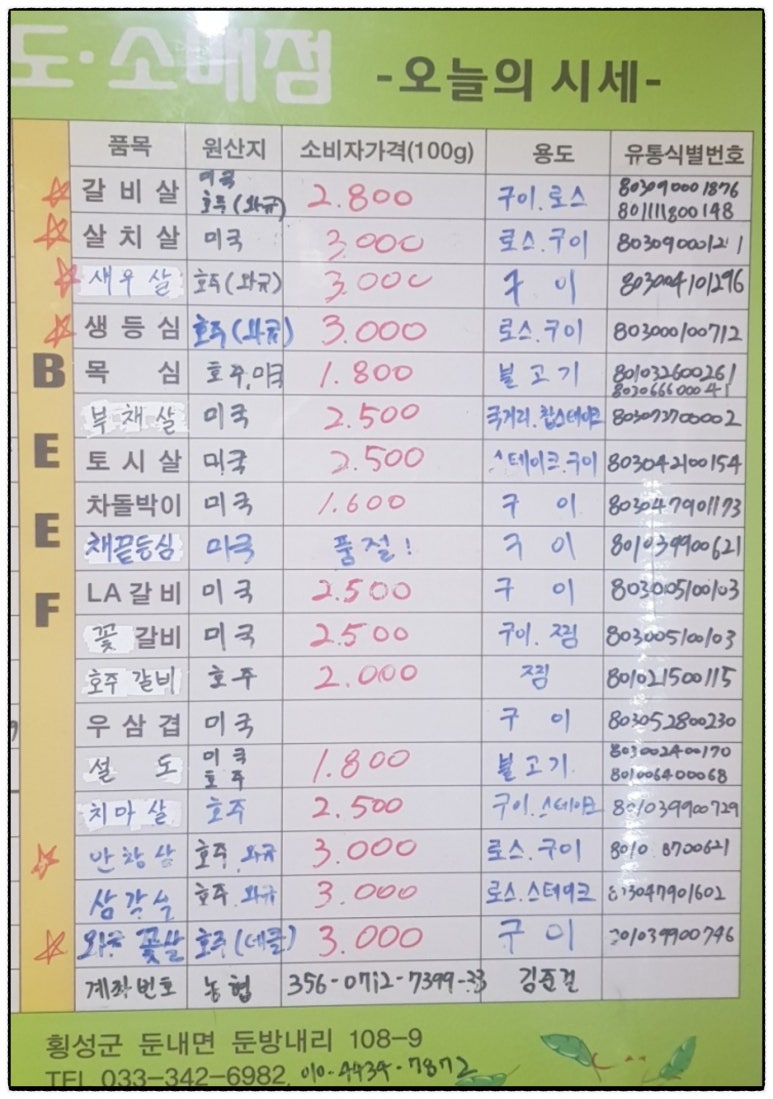 도·소매점 -오늘의 시세-
품목 원산지 소비자가격(100g) 용도 유통식별번호
갈비살 미국 호주(와규) 2.800 구이.로스 803090001876 801111800148
살치살 미국 3.000 로스.구이 803090001211
새우살 호주(와규) 3.000 구이 803004101296
생등심 호주(와규) 3.000 로스.구이 803000100712
목심 호주,미국 1.800 불고기 801032600261 803066600041
부채살 미국 2.500 국거리.찹스테이크 803073700002
토시살 미국 2.500 스테이크.구이 803042100154
차돌박이 미국 1.600 구이 803047901173
채끝등심 미국 품절! 구이 801039900621
LA갈비 미국 2.500 구이 803005100103
꽃갈비 미국 2.500 구이.찜 803005100103
호주갈비 호주 2.000 찜 801021500115
우삼겹 미국 구이 803052800230
설도 미국 호주 1.800 불고기 803002400170 801006400068
치마살 호주 2.500 구이.스테이크 801039900729
안창살 호주.와규 3.000 로스.구이
삼각살 호주.와규 3.000 로스.스테이크
와규 꽃살 호주 3.000 구이
계좌번호 농협 356-0712-7399-33 김준길
BEEF
횡성군 둔내면 둔방내리 108-9
TEL 033-342-6982, 010-4434-7872